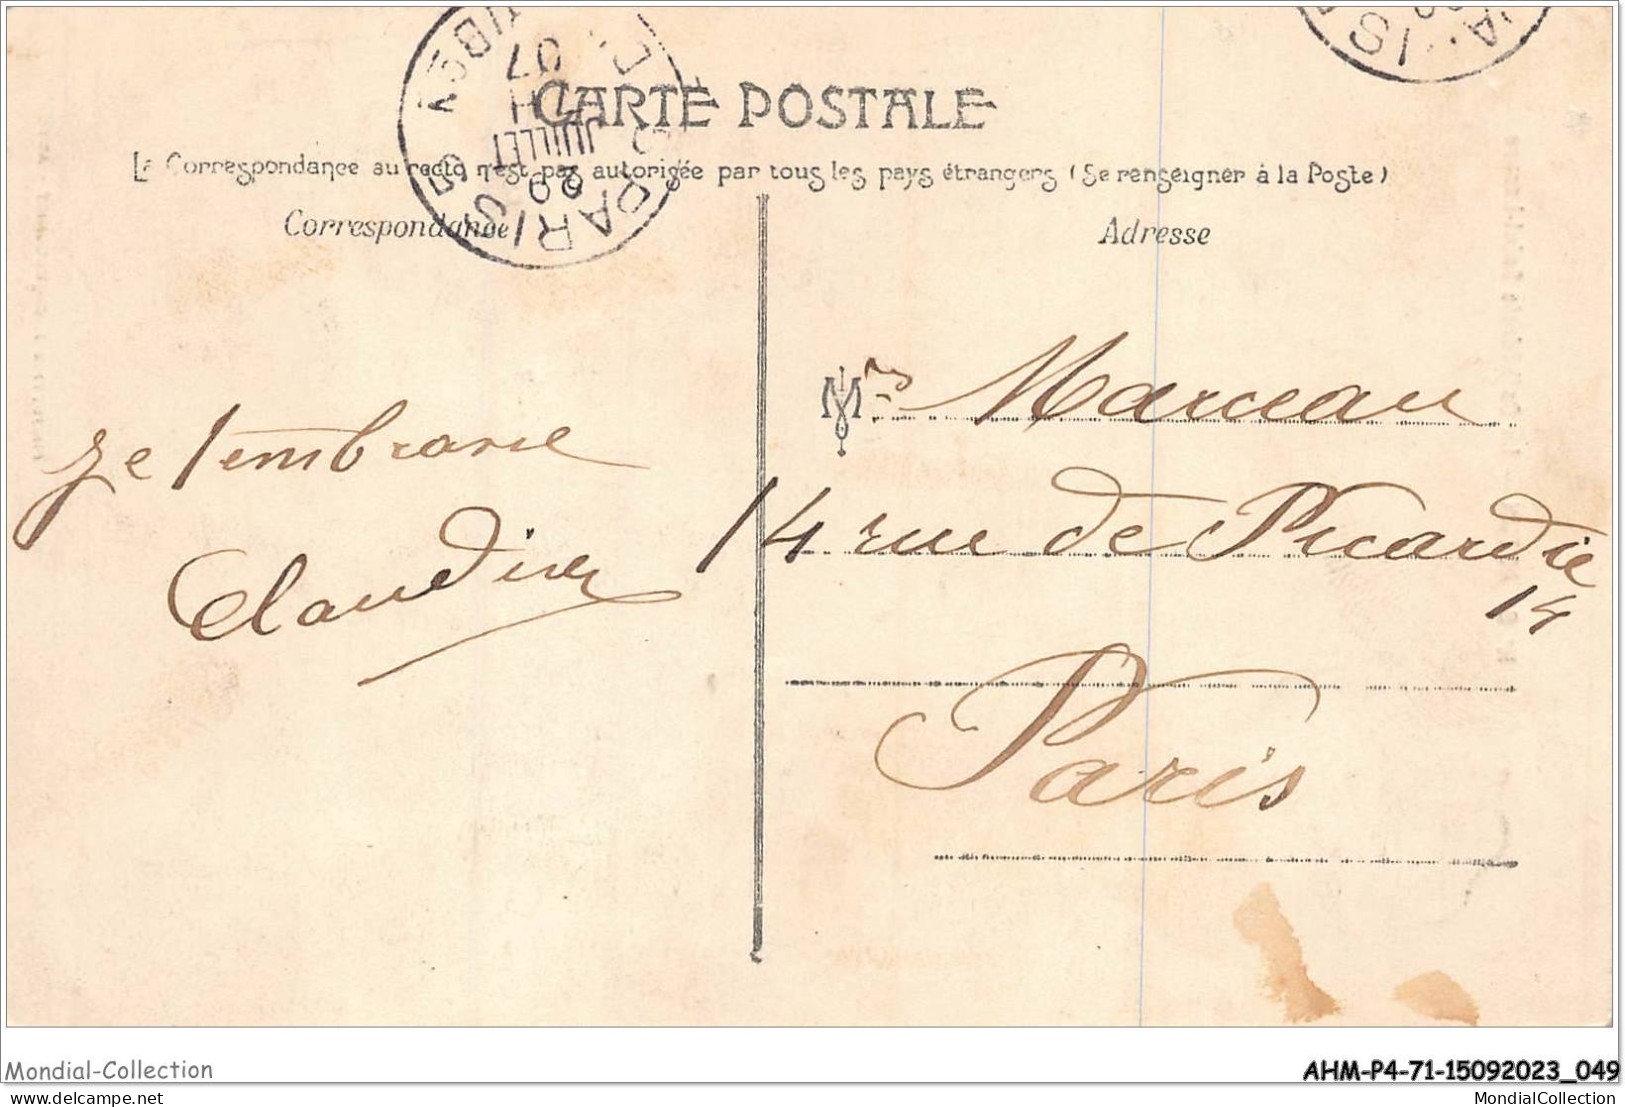 CARTE POSTALE
La Correspondance au recto n'est pas autorisée par tous les pays étrangers (Se renseigner à la Poste)
Correspondance
Adresse
PARIS
29
JUILLET
07
Je t'embrasse
M Marceau
14 rue de Picardie
14
Paris
Mondial-Collection
AHM-P4-71-15092023_049
delcampe.net
MondialCollection